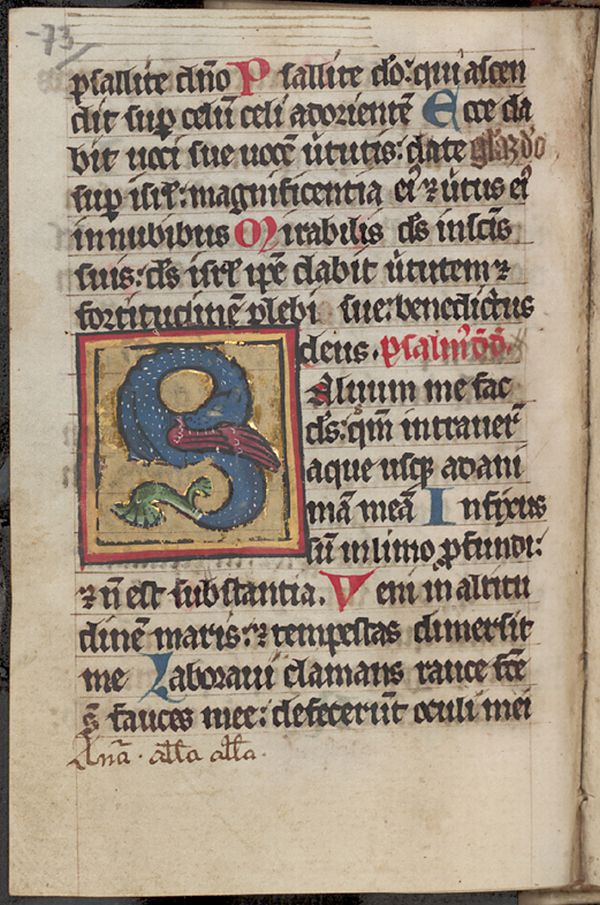 73
psallite dño Psallite do: qui ascen
dit sup celũ celi adorientẽ Ecce da
bit uoci sue uocẽ ũtutis: date glãz do
sup isrl: magnificentia eiꝰ ⁊ ũtus eiꝰ
innubibus Mirabilis ds in scĩs
suis: ds isrl ipẽ dabit ũtutem ⁊
fortitudinẽ plebi sue: benedictus
deus. psalmꝰ dd.
Saluum me fac
ds: qm̃ intrauer̃
aque usqꝫ adani
mã meã Infixus
sũ in limo ꝓfundi:
⁊ ñ est substantia. Veni in altitu
dinẽ maris: ⁊ tempestas dimersit
me Laboraui clamans rauce fcẽ
s̃ fauces mee: defecerũt oculi mei
Anã. alla alla.